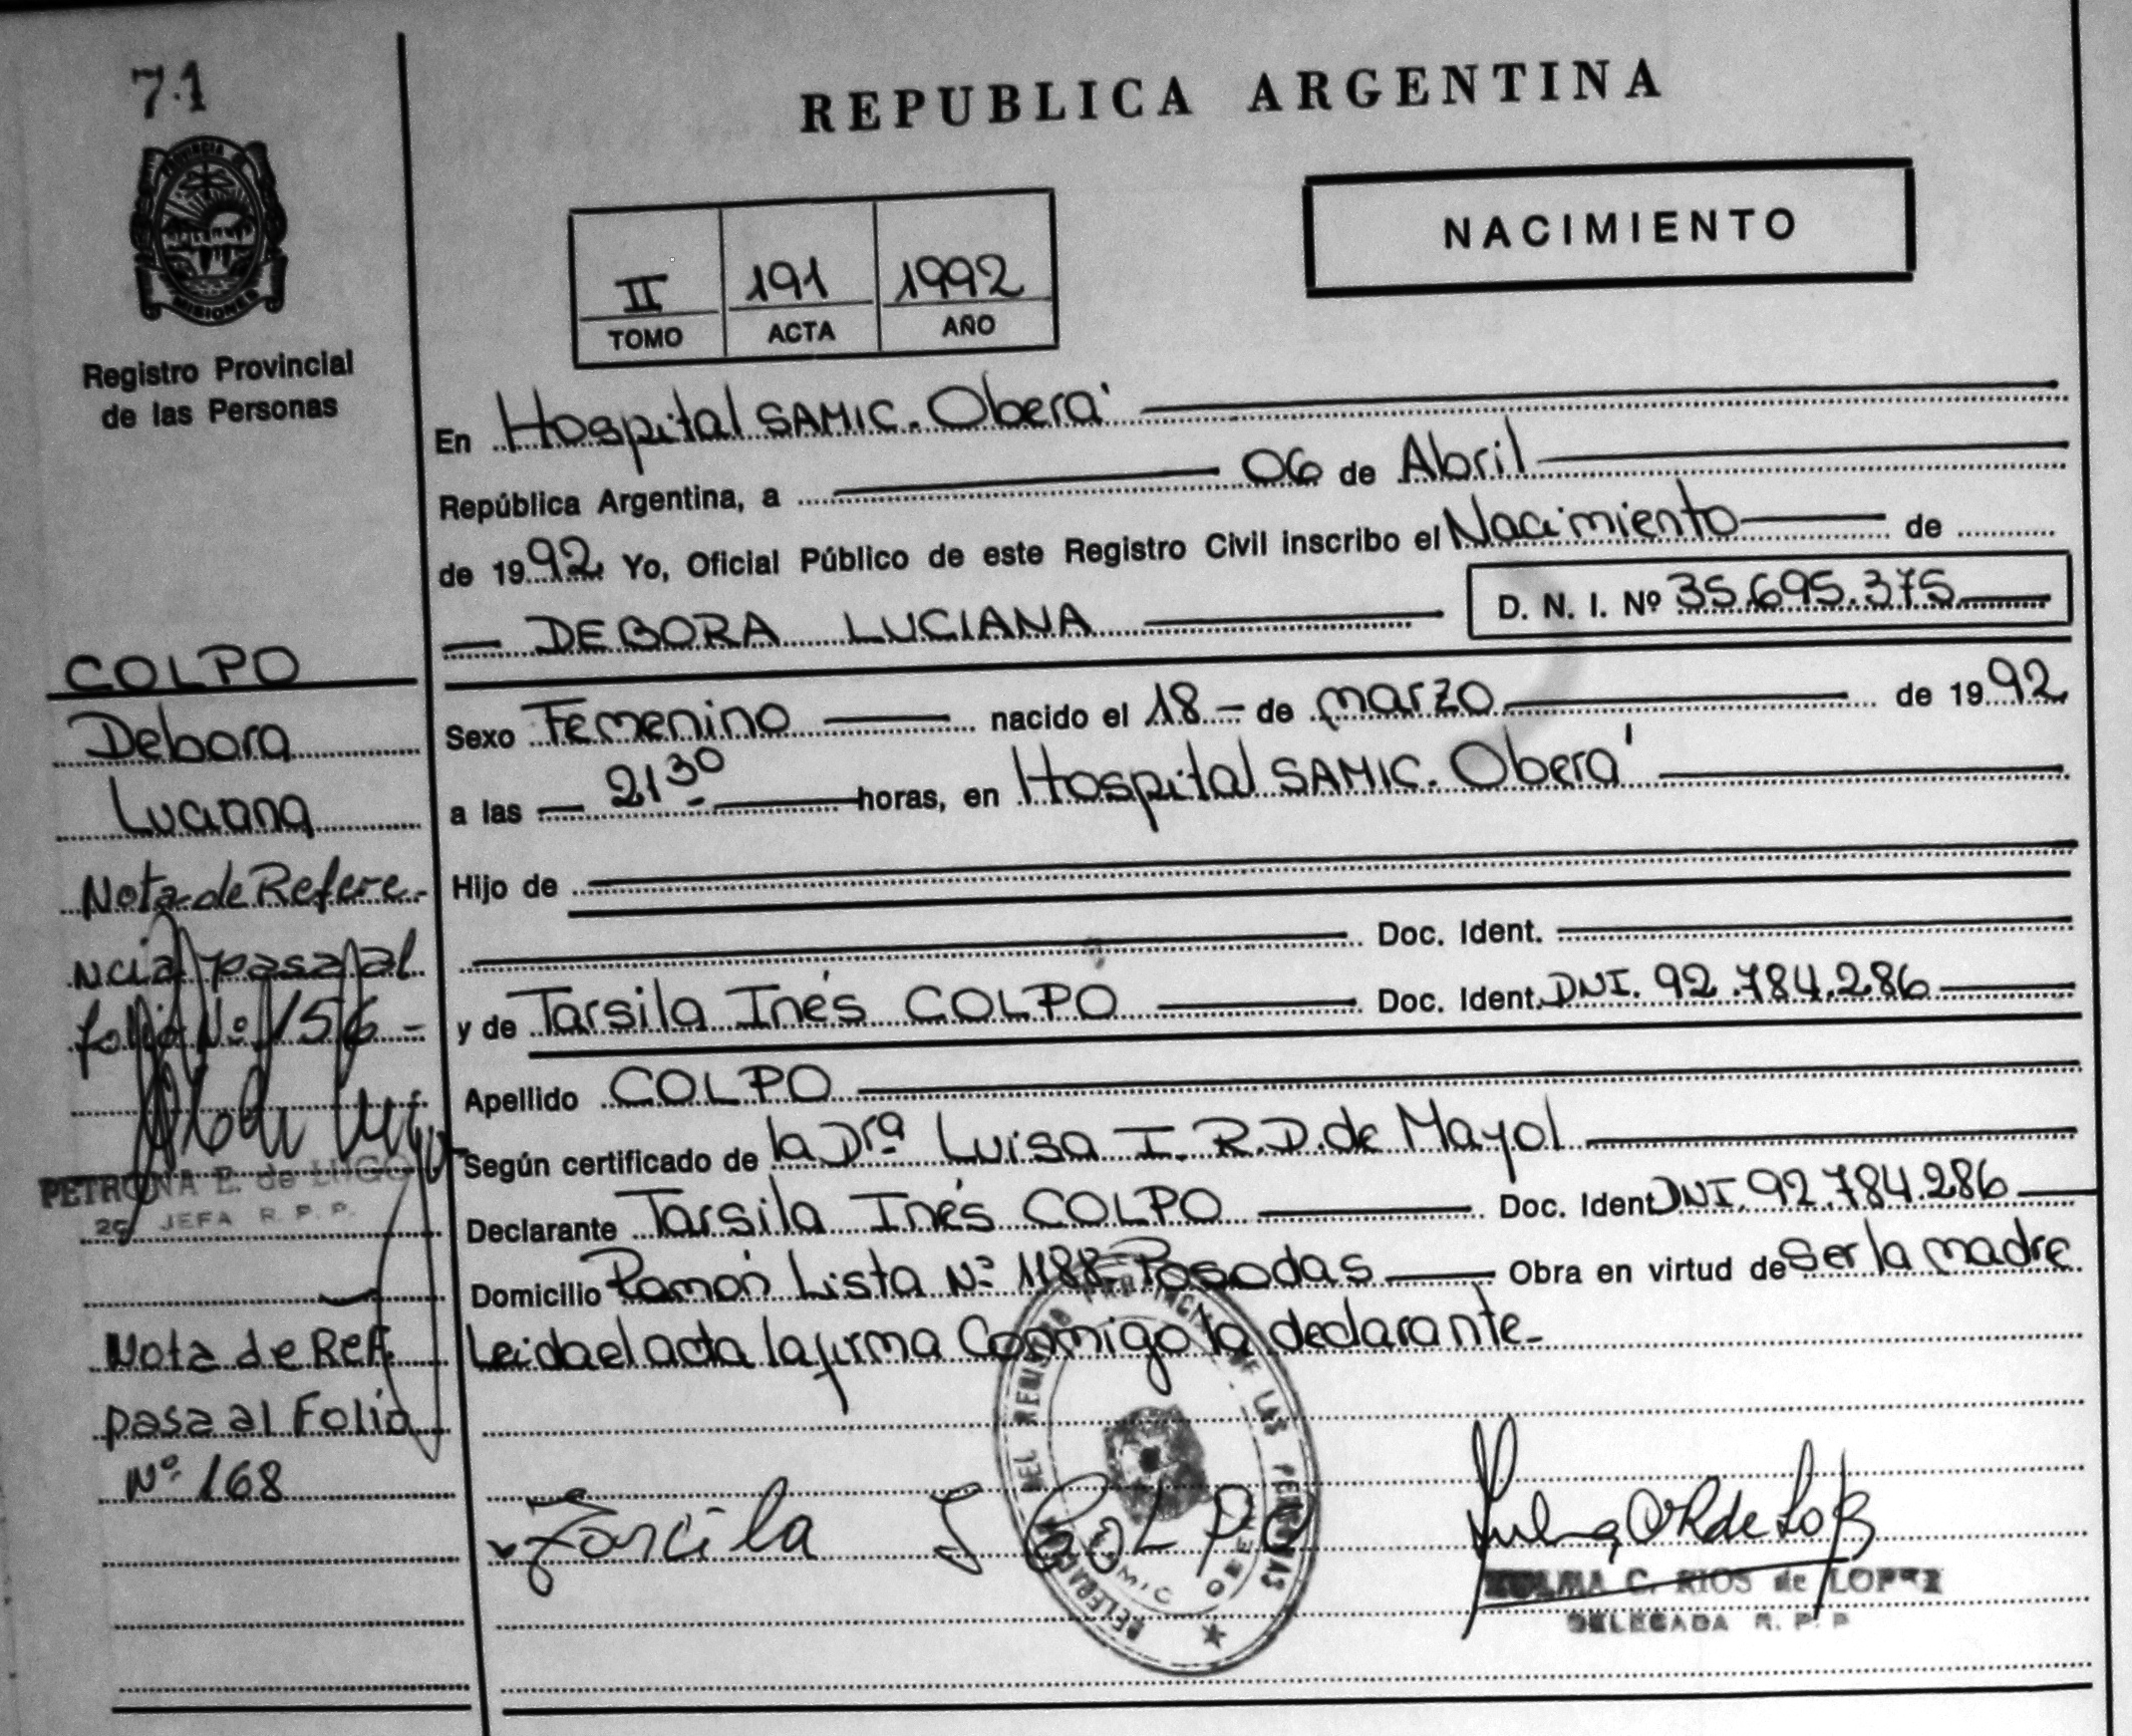 71
REPUBLICA ARGENTINA
NACIMIENTO
II 191 1992
TOMO ACTA AÑO
PROVINCIA DE
MISIONES
Registro Provincial
de las Personas
En Hospital SAMIC. Oberá
República Argentina, a 06 de Abril
de 1992 Yo, Oficial Público de este Registro Civil inscribo el Nacimiento de
DEBORA LUCIANA D. N. I. Nº 35.695.375
COLPO
Debora
Luciana
Nota de Refere-
ncial pasa al
folio Nº 156-
PETRONA E. de LUGO
JEFA R. P. P.
Nota de Ref.
pasa al Folio
Nº 168
Sexo Femenino nacido el 18 - de marzo de 1992
a las 21 30 horas, en Hospital SAMIC. Oberá
Hijo de
Doc. Ident.
y de Tarsila Inés COLPO Doc. Ident. DNI. 92.784.286
Apellido COLPO
Según certificado de la Drª Luisa I. R.D. de Mayol
Declarante Tarsila Inés COLPO Doc. Ident DNI. 92.784.286
Domicilio Ramón Lista Nº 1188 Posadas Obra en virtud de ser la madre
Leida el acta la firma Conmigo la declarante-
Tarcila I COLPO
C. RIOS de LOPEZ
DELEGADA R. P. P